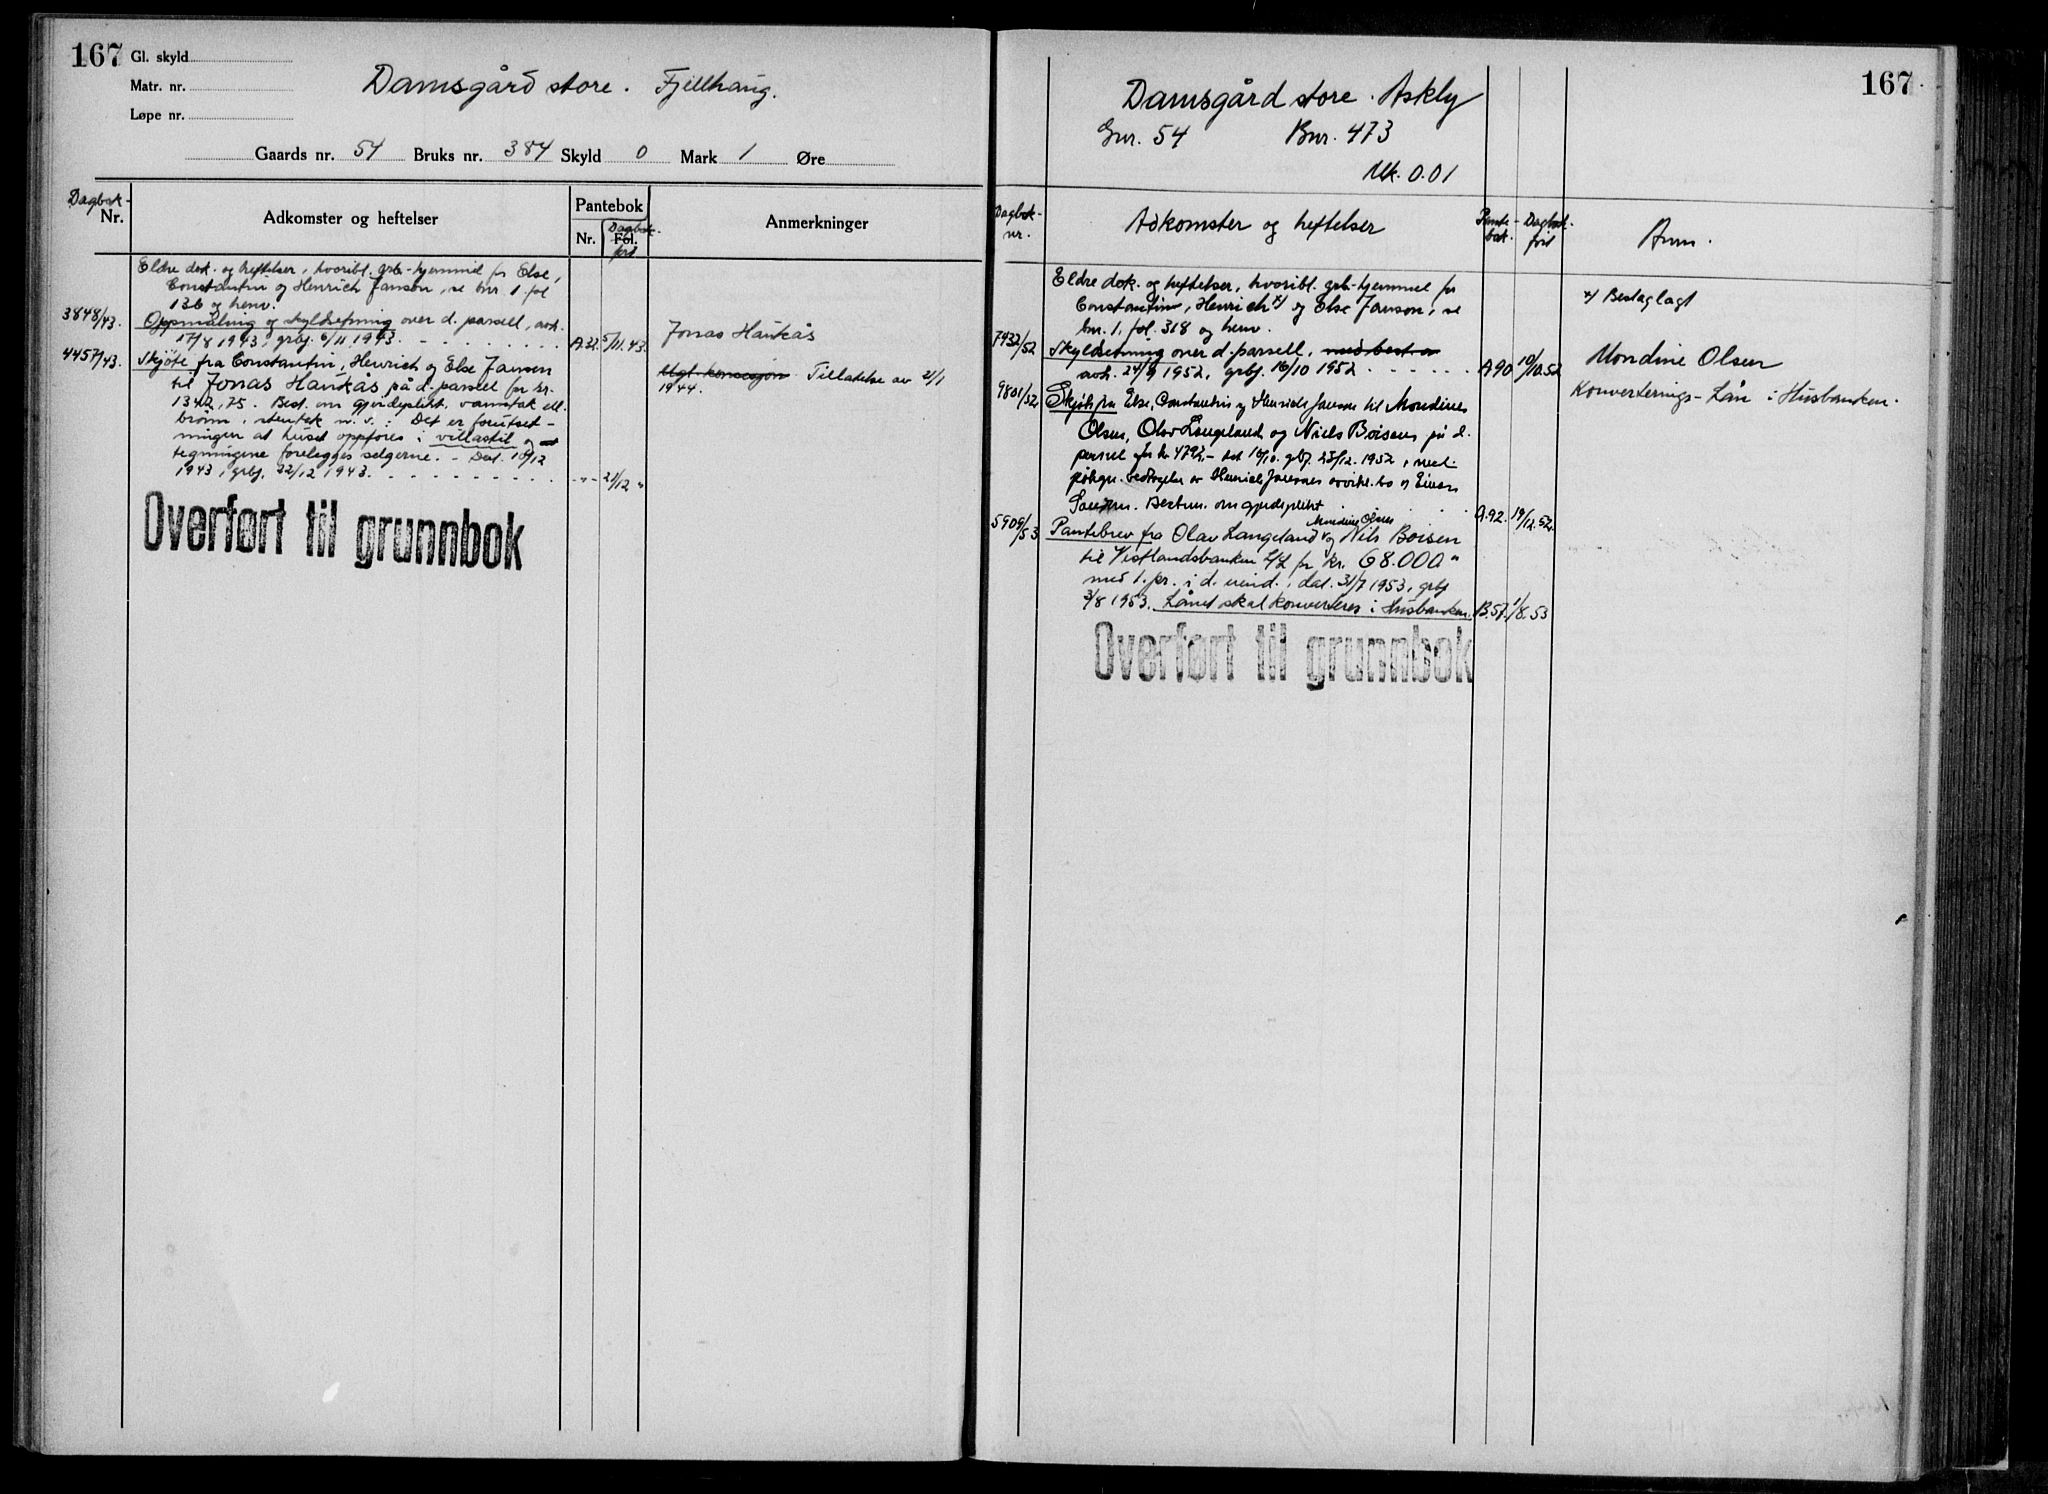 167
Gl. skyld
Matr. nr.
Løpe nr.
Damsgård store. Fjellhaug.
Gaards nr. 54 Bruks nr. 384 Skyld 0 Mark 1 Øre
Dagbok-
Nr.
Adkomster og heftelser
Pantebok
Nr.
Fol.
Dagbok-
ført
Anmerkninger
Eldre dok. og heftelser, hvoribl. grb-hjemmel for Else,
Constantin og Henrich Janson, se bnr. 1 fol
136 og henv.
3848/43.
Oppmåling og skyldsetning over d. parsell, avh.
17/8 1943, grbj. 6/11 1943. A 32. 5/11.43. Jonas Haukås
4457/43.
Skjöte fra Constantin, Henrich og Else Janson
til Jonas Haukås på d. parsell for kr.
1342,75. Best. om gjerdeplikt, vanntak ell.
brönn, stentak m.v.: Det er forutset-
ningen at huset oppföres i villastil og at
tegningene forelegges selgerne. - Dat. 18/12
1943, grbj. 22/12 1943. -"- 21/12 "
Utgt. konsesjon. Tillatelse av 21/1
1944.
Overført til grunnbok
167
Damsgård store. Askly
Gnr. 54 Bnr. 473
Mk. 0.01
Dagbok-
nr.
Adkomster og heftelser
Pante-
bok.
Dagbok-
ført
Anm.
Eldre dok. og heftelser, hvoribl. grb-hjemmel for
Constantin, Henrich x) og Else Janson, se
bnr. 1, fol. 318 og henv.
x) Beslaglagt
7932/52
Skyldsetning over d. parsell, med best. om
avh. 24/9 1952, grbj. 16/10 1952 A 90 10/10.52 Mondine Olsen
Konverterings-Lån i Husbanken.
9801/52
Skjöte fra Else, Constantin og Henrich Janson til Mondine
Olsen, Olav Langeland og Niels Boisen på d.
parsel for kr. 4792,- dat 16/10. grbj. 23/12. 1952, med
Bestem. om gjerdeplikt A.92. 19/12.52.
5909/53
Pantebrev fra Olav Langeland, Mondine Olsen og Nils Boisen
til Vestlandsbanken A/L for kr. 68.000 "
med 1. pr. i d. eiend., dat. 31/7 1953, grbj
3/8 1953. Lånet skal konverteres i Husbanken. B.57. 1/8.53
Overført til grunnbok